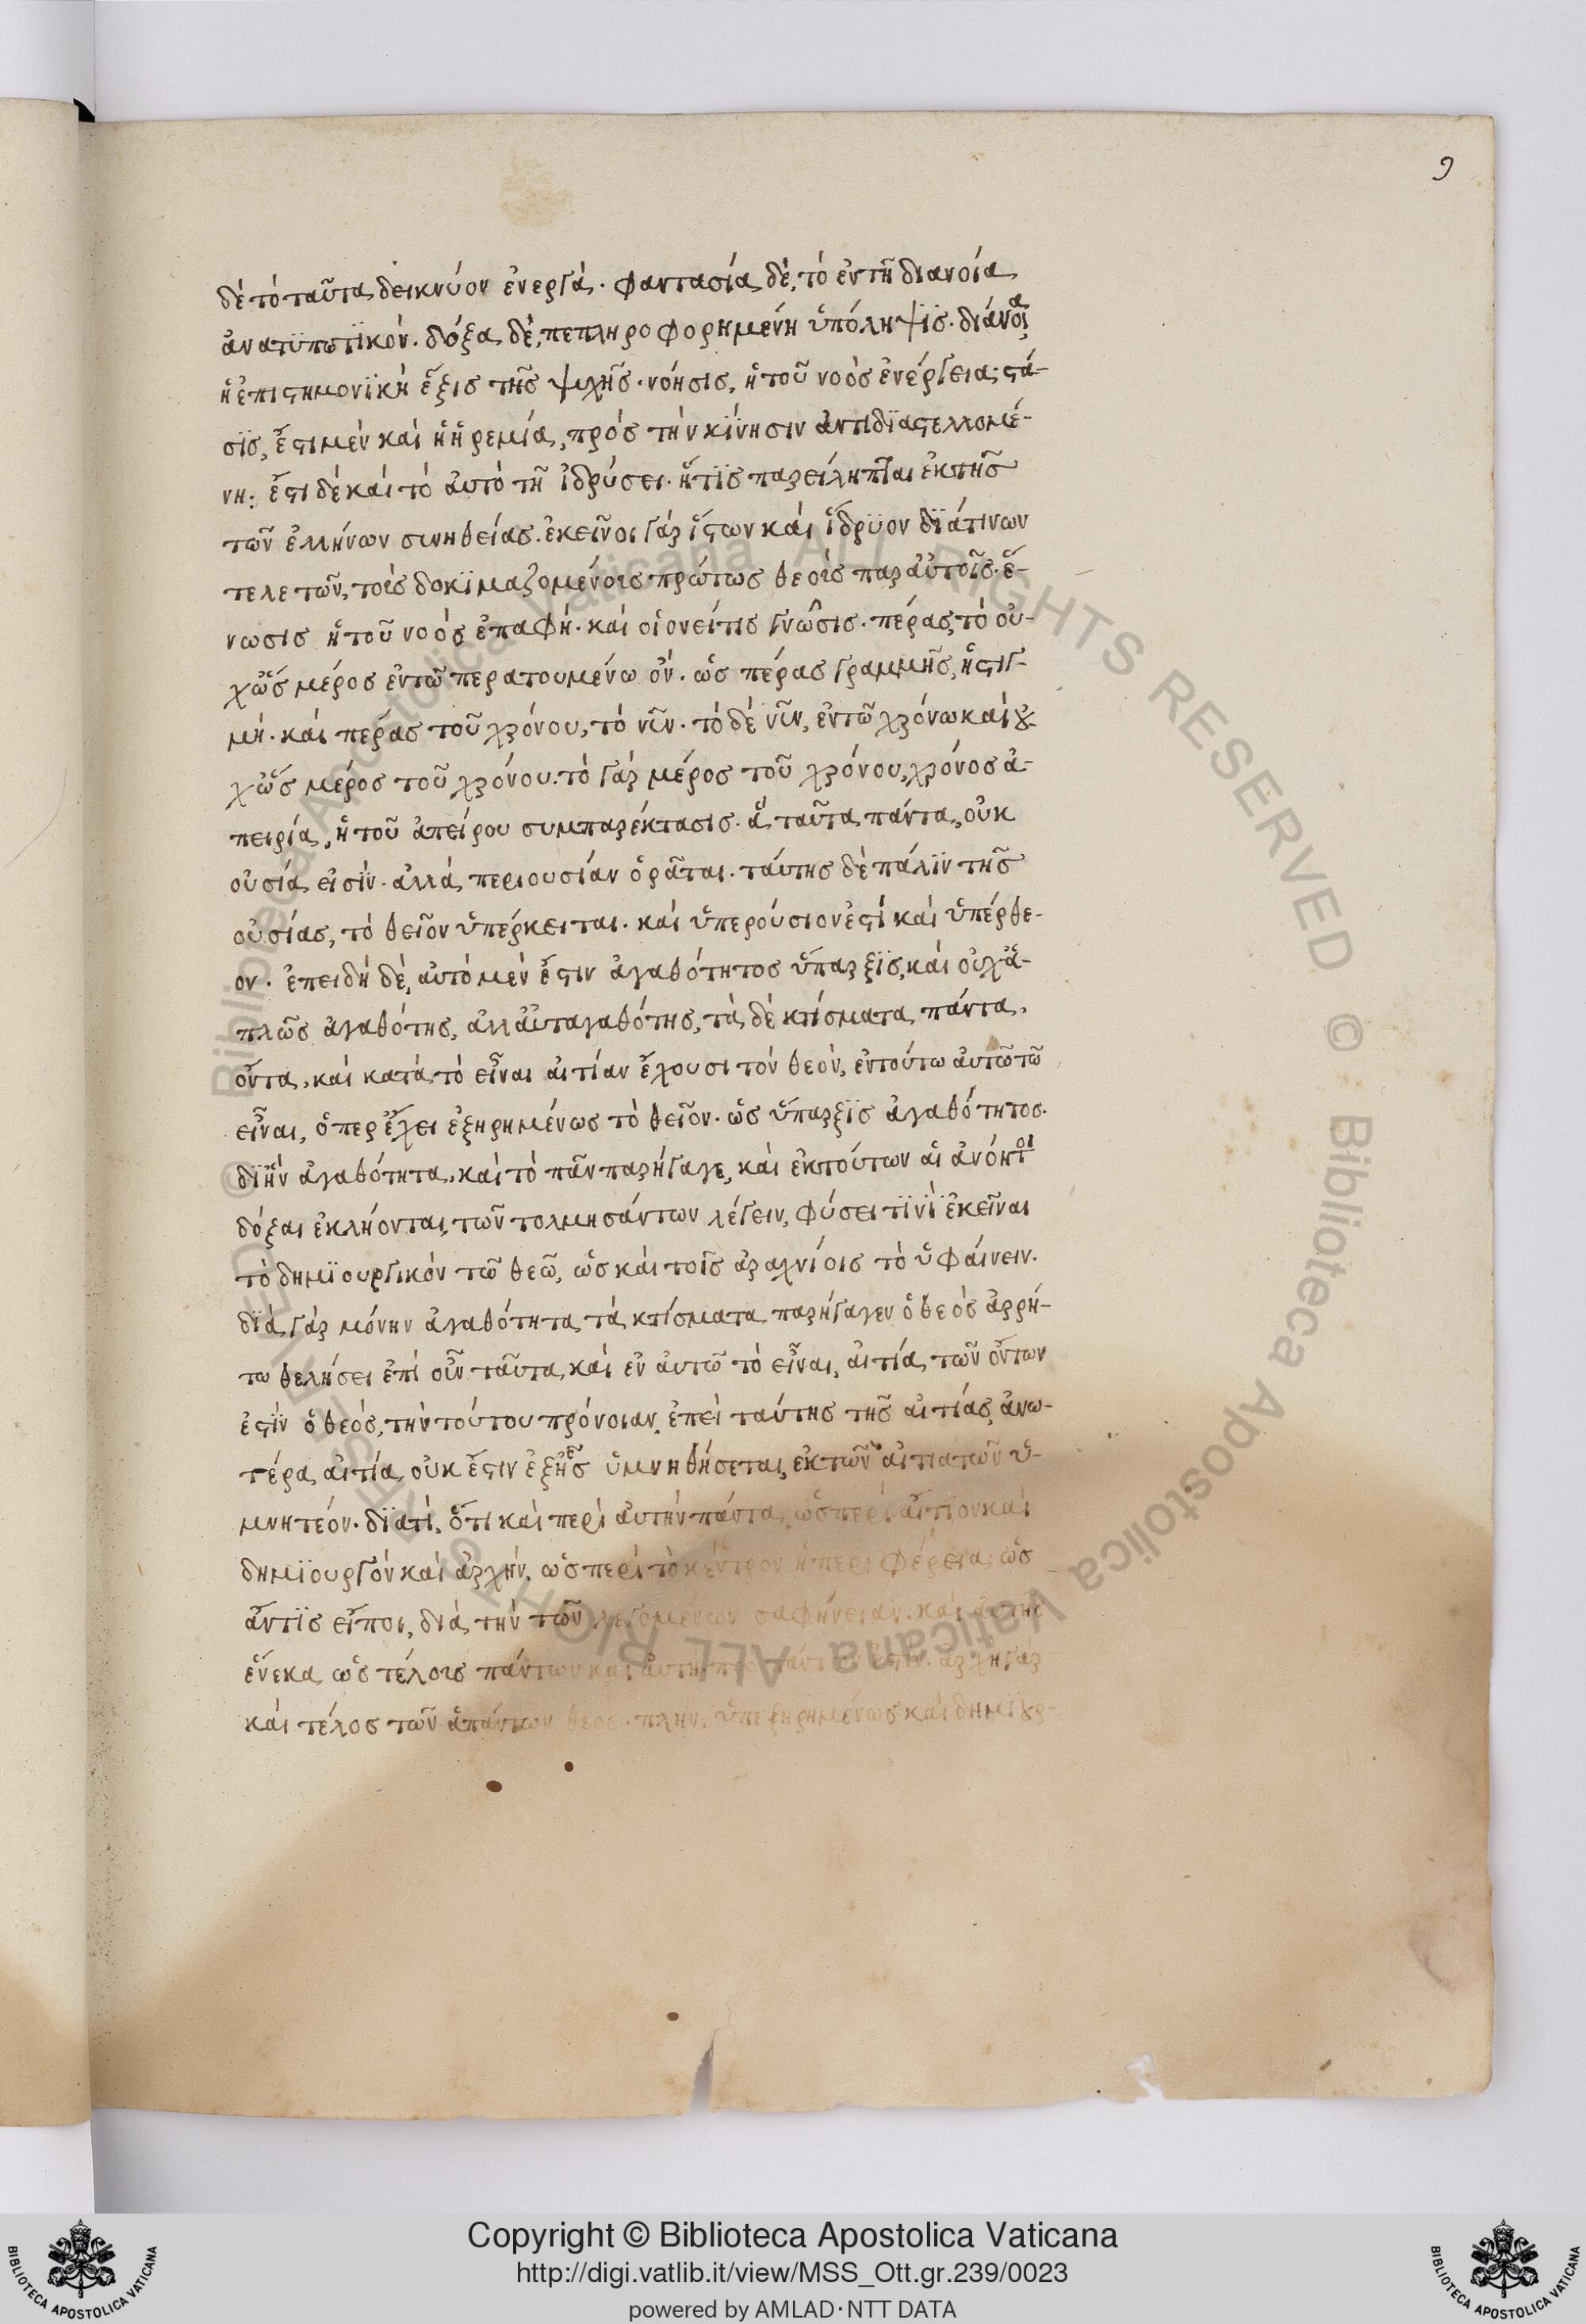 9
δὲ τὸ ταῦτα δεικνύον ἐνεργὰ· φαντασία δὲ, τὸ ἐν τῆ διανοία
ἀνατϋπωτϊκὸν· δόξα δὲ, πεπληροφορημένη ὑπόληψϊς· διάνοια
ἡ ἐπιστημονϊκὴ ἕξις τῆς ψυχῆς· νόησις, ἡ τοῦ νοὸς ἐνέργεια· στά-
σϊς, ἔστι μὲν καὶ ἡ ἠρεμία, πρὸς τὴν κίνησιν ἀντιδϊαστελλομέ-
νη· ἔστι δὲ καὶ τὸ αὐτὸ τῆ ἱδρύσει· ἥτϊς παρείληπται ἐκ τῆς
τῶν ἑλλήνων συνηθείας· ἐκεῖνοι γὰρ ἵστων καὶ ἵδρϋον δϊά τινων
τελετῶν, τοὶς δοκϊμαζομένοις πρώτως θεοὶς παρ αὐτοῖς· ἕ-
νωσις ἡ τοῦ νοὸς ἐπαφή· καὶ οἱονεί τις γνῶσις· πέρας, τὸ οὐ-
χ ὡς μέρος ἐν τῶ περατουμένω ὂν· ὡς πέρας γραμμῆς, ἡ στιγ-
μή· καὶ πέρας τοῦ χρόνου, τὸ νῦν· τὸ δὲ νῦν, ἐν τῶ χρόνω καὶ οὐ
χ ὡς μέρος τοῦ χρόνου· τὸ γὰρ μέρος τοῦ χρόνου, χρόνος ἀ-
πειρία, ἡ τοῦ ἀπείρου συμπαρέκτασις· ἃ ταῦτα πάντα, οὐκ
οὐσία εἰσὶν· ἀλλὰ περι οὐσίαν ὁρᾶται· ταύτης δὲ πάλϊν τῆς
οὐσίας, τὸ θεῖον ὑπέρκειται· καὶ ὑπερούσιον ἐστί καὶ ὑπέρθε-
ον· ἐπειδὴ δὲ, αὐτὸ μὲν ἔστιν ἀγαθότητος ὕπαρξϊς, καὶ οὐχ ἁ-
πλῶς ἀγαθότης, ἀλλ αὐταγαθότης, τὰ δὲ κτίσματα πάντα,
ὄντα, καὶ κατὰ τὸ εἶναι αἰτίαν ἔχουσι τὸν θεὸν, ἐν τούτω αὐτῶ τῶ
εἶναι, ὅπερ ἔχει ἐξηρημένως τὸ θεῖον· ὡς ὕπαρξϊς ἀγαθότητος·
δϊ ἣν ἀγαθότητα, καὶ τὸ πᾶν παρήγαγε, καὶ ἐκ τούτων αἱ ἀνόητοι
δόξαι ἐκλήονται, τῶν τολμησάντων λέγειν, φύσει τϊνὶ ἐκεῖναι
τὸ δημϊουργικὸν τῶ θεῶ, ὡς καὶ τοῖς ἀραχνίοις τὸ ὑφαίνειν·
δϊὰ γὰρ μόνην ἀγαθότητα τὰ κτίσματα παρήγαγεν ὁ θεὸς ἀρρή-
τω θελήσει ἐπὶ οὖν ταῦτα καὶ ἐν αὐτῶ τὸ εἶναι, αἰτία τῶν ὄντων
ἐστὶν ὁ θεὸς, τὴν τούτου πρόνοιαν, ἐπεὶ ταύτης τῆς αἰτίας, ἀνω-
τέρα αἰτία οὐκ ἔστιν ἐξ ἧς ὑμνηθήσεται, ἐκ τῶν αἰτιατῶν ὑ-
μνητέον· δϊατί, ὅτι καὶ περὶ αὐτὴν πάντα, ὡς περὶ αἴτιον καὶ
δημϊουργὸν καὶ ἀρχὴν, ὡς περὶ τὸ κέντρον ἡ περιφέρεια· ὡς
ἄν τϊς εἴποι, διὰ τὴν τῶν λεγομένων σαφήνειαν· καὶ αὐτῆς
ἕνεκα ὡς τέλοις πάντων καὶ αὐτὴ πρὸ πάντων ἐστὶν· ἀρχὴ γὰρ
καὶ τέλος τῶν ἁπάντων θεὸς· πλὴν, ὑπεξηρημένως καὶ δημϊουρ-
Copyright © Biblioteca Apostolica Vaticana
http://digi.vatlib.it/view/MSS_Ott.gr.239/0023
powered by AMLAD·NTT DATA
BIBLIOTECA APOSTOLICA VATICANA
BIBLIOTECA APOSTOLICA VATICANA